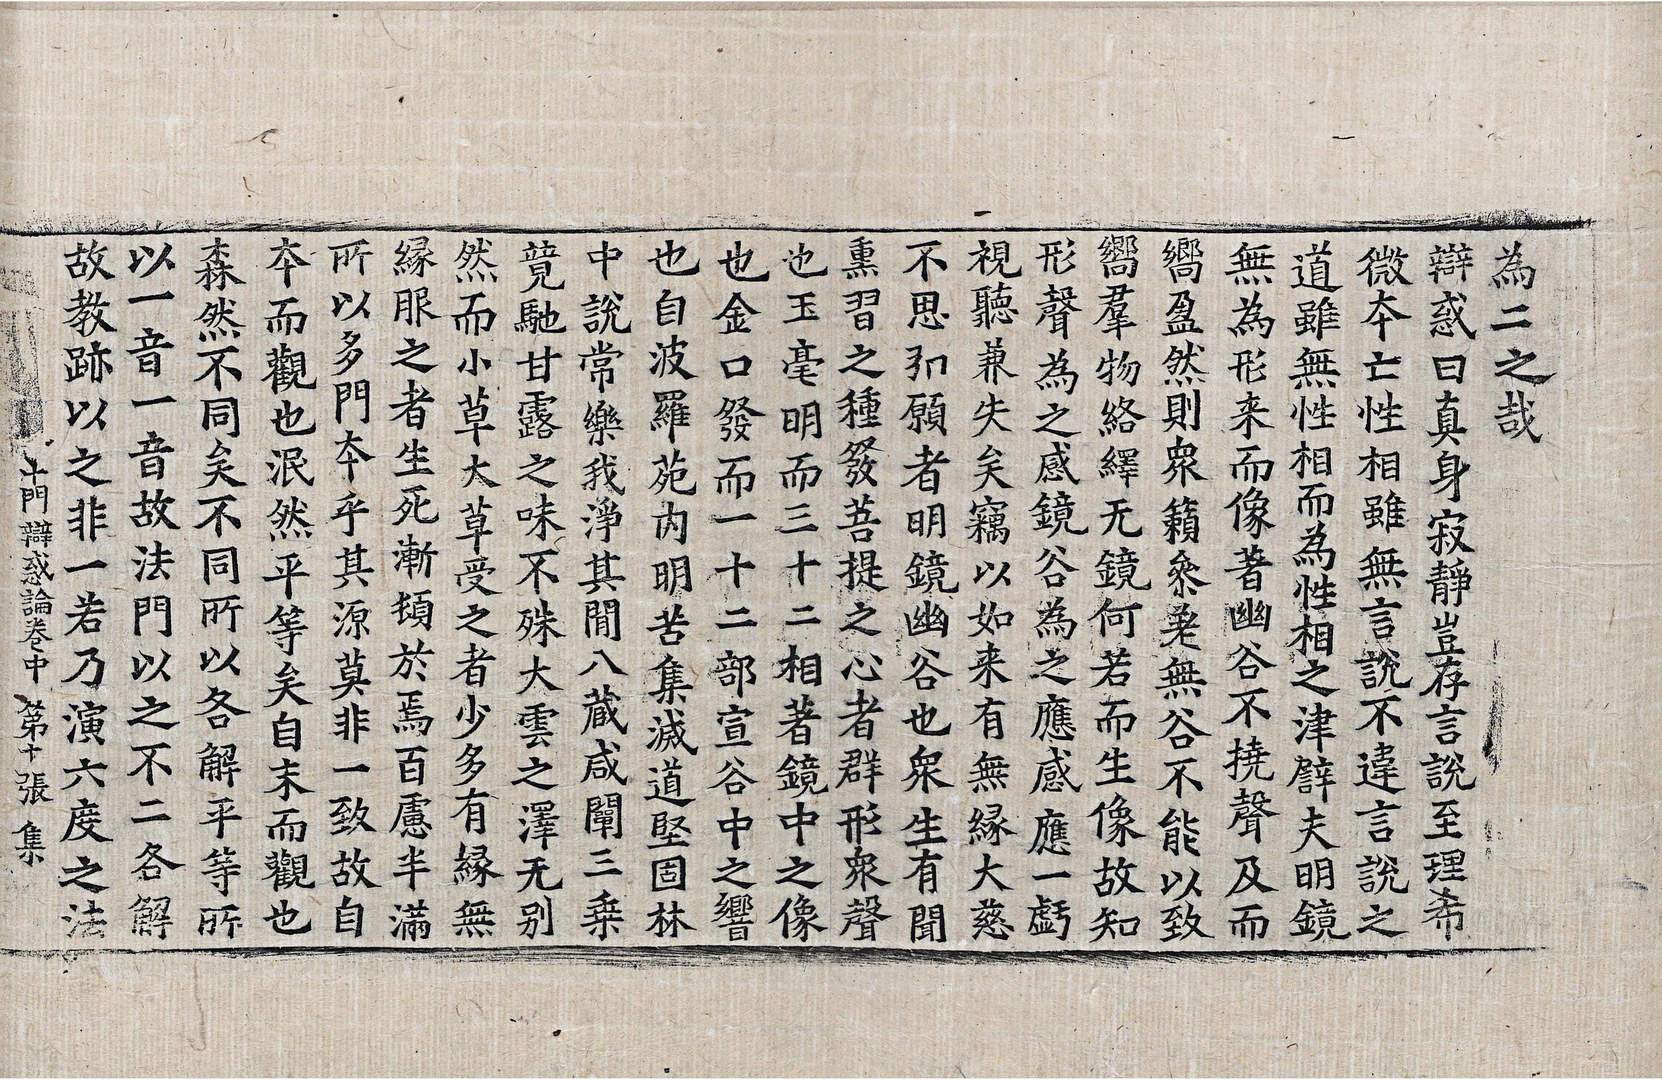 為二之哉
辯惑曰真身寂靜豈存言說至理希
微夲亡性相雖無言說不違言說之
道雖無性相而為性相之津譬夫明鏡
無為形来而像著幽谷不撓聲及而
嚮盈然則衆籟叅差無谷不能以致
嚮羣物絡繹无鏡何若而生像故知
形聲為之感鏡谷為之應感應一虧
視聽兼失矣竊以如来有無緣大慈
不思弘願者明鏡幽谷也衆生有聞
熏習之種發菩提之心者群形衆聲
也玉毫明而三十二相著鏡中之像
也金口發而一十二部宣谷中之響
也自波羅苑內明苦集滅道堅固林
中說常樂我淨其閒八蔵咸闡三乗
競馳甘露之味不殊大雲之澤无别
然而小草大草受之者少多有緣無
緣服之者生死漸頓於焉百慮半滿
所以多門夲乎其源莫非一致故自
夲而觀也泯然平等矣自末而觀也
森然不同矣不同所以各解平等所
以一音一音故法門以之不二各解
故教跡以之非一若乃演六度之法
十門辯惑論卷中 第十張 集